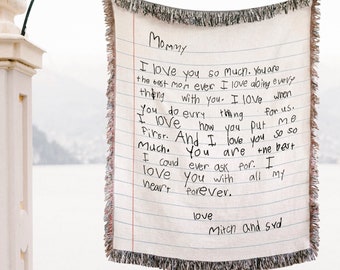 Mommy
I love you so much. You are
the best mom ever I love doing every
thing with you. I love when
you do evry thing for us.
I love how you put me
first. And I love you so so
much. You are the best
I could ever ask for. I
love you with all my
heart forever.
love
Mitch and syd